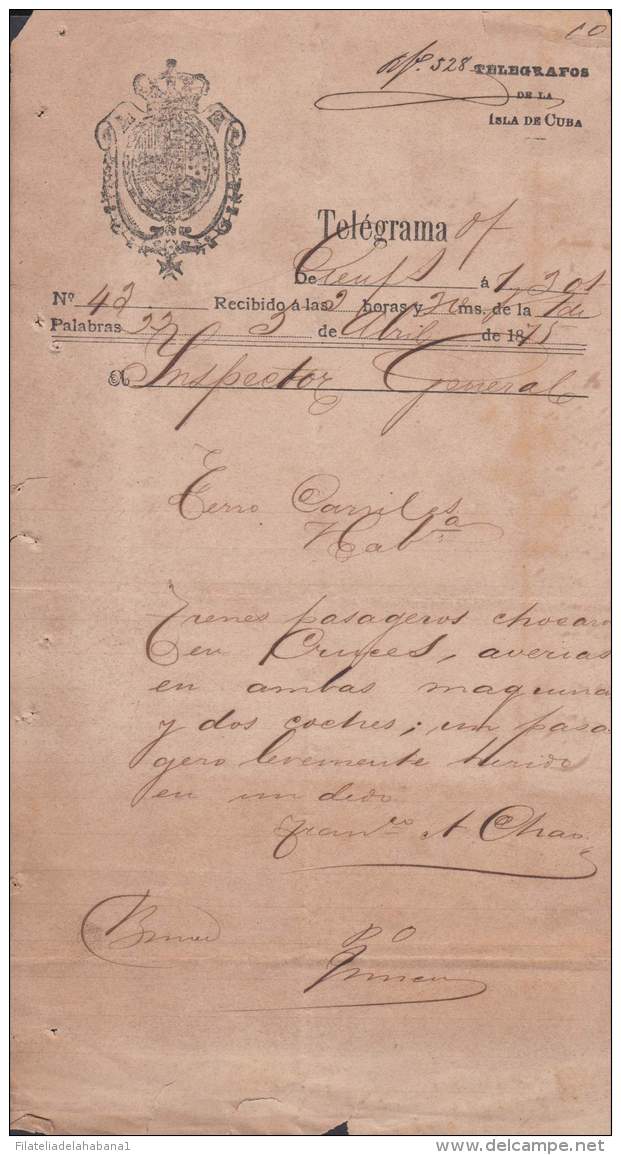 10
528
TELEGRAFOS
DE LA
ISLA DE CUBA
Telégrama of
De Cienfs á 1,20t
Nº 42 Recibido á las 2 horas y 20 ms. de la t de
Palabras 22 3 de Abril de 1875
á Inspector General
Ferro Carriles
Habª
Trenes pasageros chocaro
en Cruces, averias
en ambas maquina
y dos coches; un pasa
gero levemente herido
en un dedo
Franco A Chao
P O
Filateliadelahabana1
www.delcampe.net